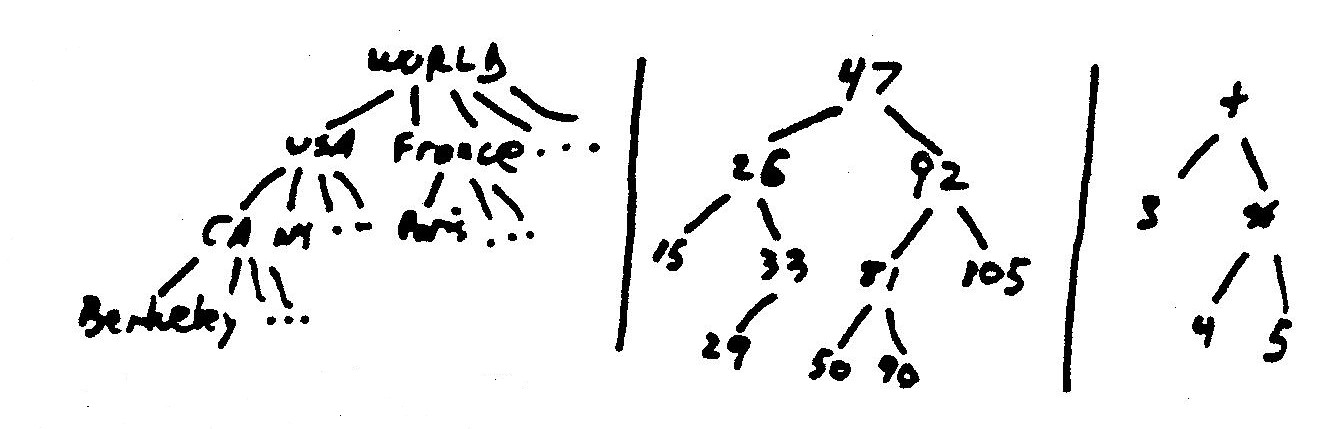 WORLD
USA France...
CA NY ... Paris ...
Berkeley ...
47
26 92
15 33 81 105
29 50 90
+
3 *
4 5